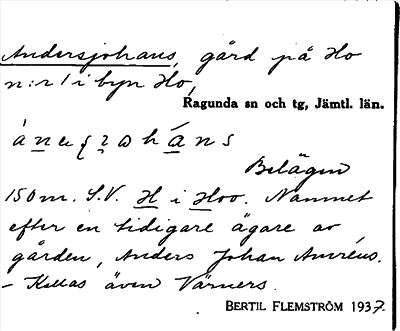 Andersjohans, gård på Ho
n:r 1 i byn Ho,
Ragunda sn och tg, Jämtl. län.
Belägen
150 m. S.V. H i Hoo. Namnet
efter en tidigare ägare av
gården, Anders Johan Amréus.
– Kallas även Värners.
BERTIL FLEMSTRÖM 1937.